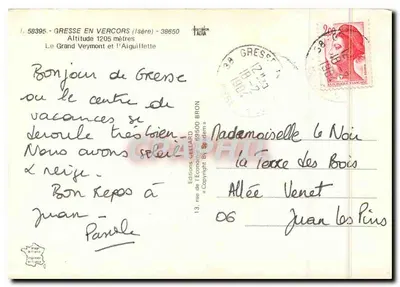 58395. - GRESSE EN VERCORS (Isère) - 38650
Altitude 1205 mètres
Le Grand Veymont et l'Aiguillette
Bonjour de Gresse
ou le centre de
vacances se
deroule tres bien.
Nous avons soleil
& neige.
Bon Repos à
Juan -
Editions CELLARD
13, rue de l'Economie - 69500 BRON
38 GRESSE
18-2
2,00
Mademoiselle Le Noir
La Terre des Bois
Allée Venet
06 Juan Les Pins